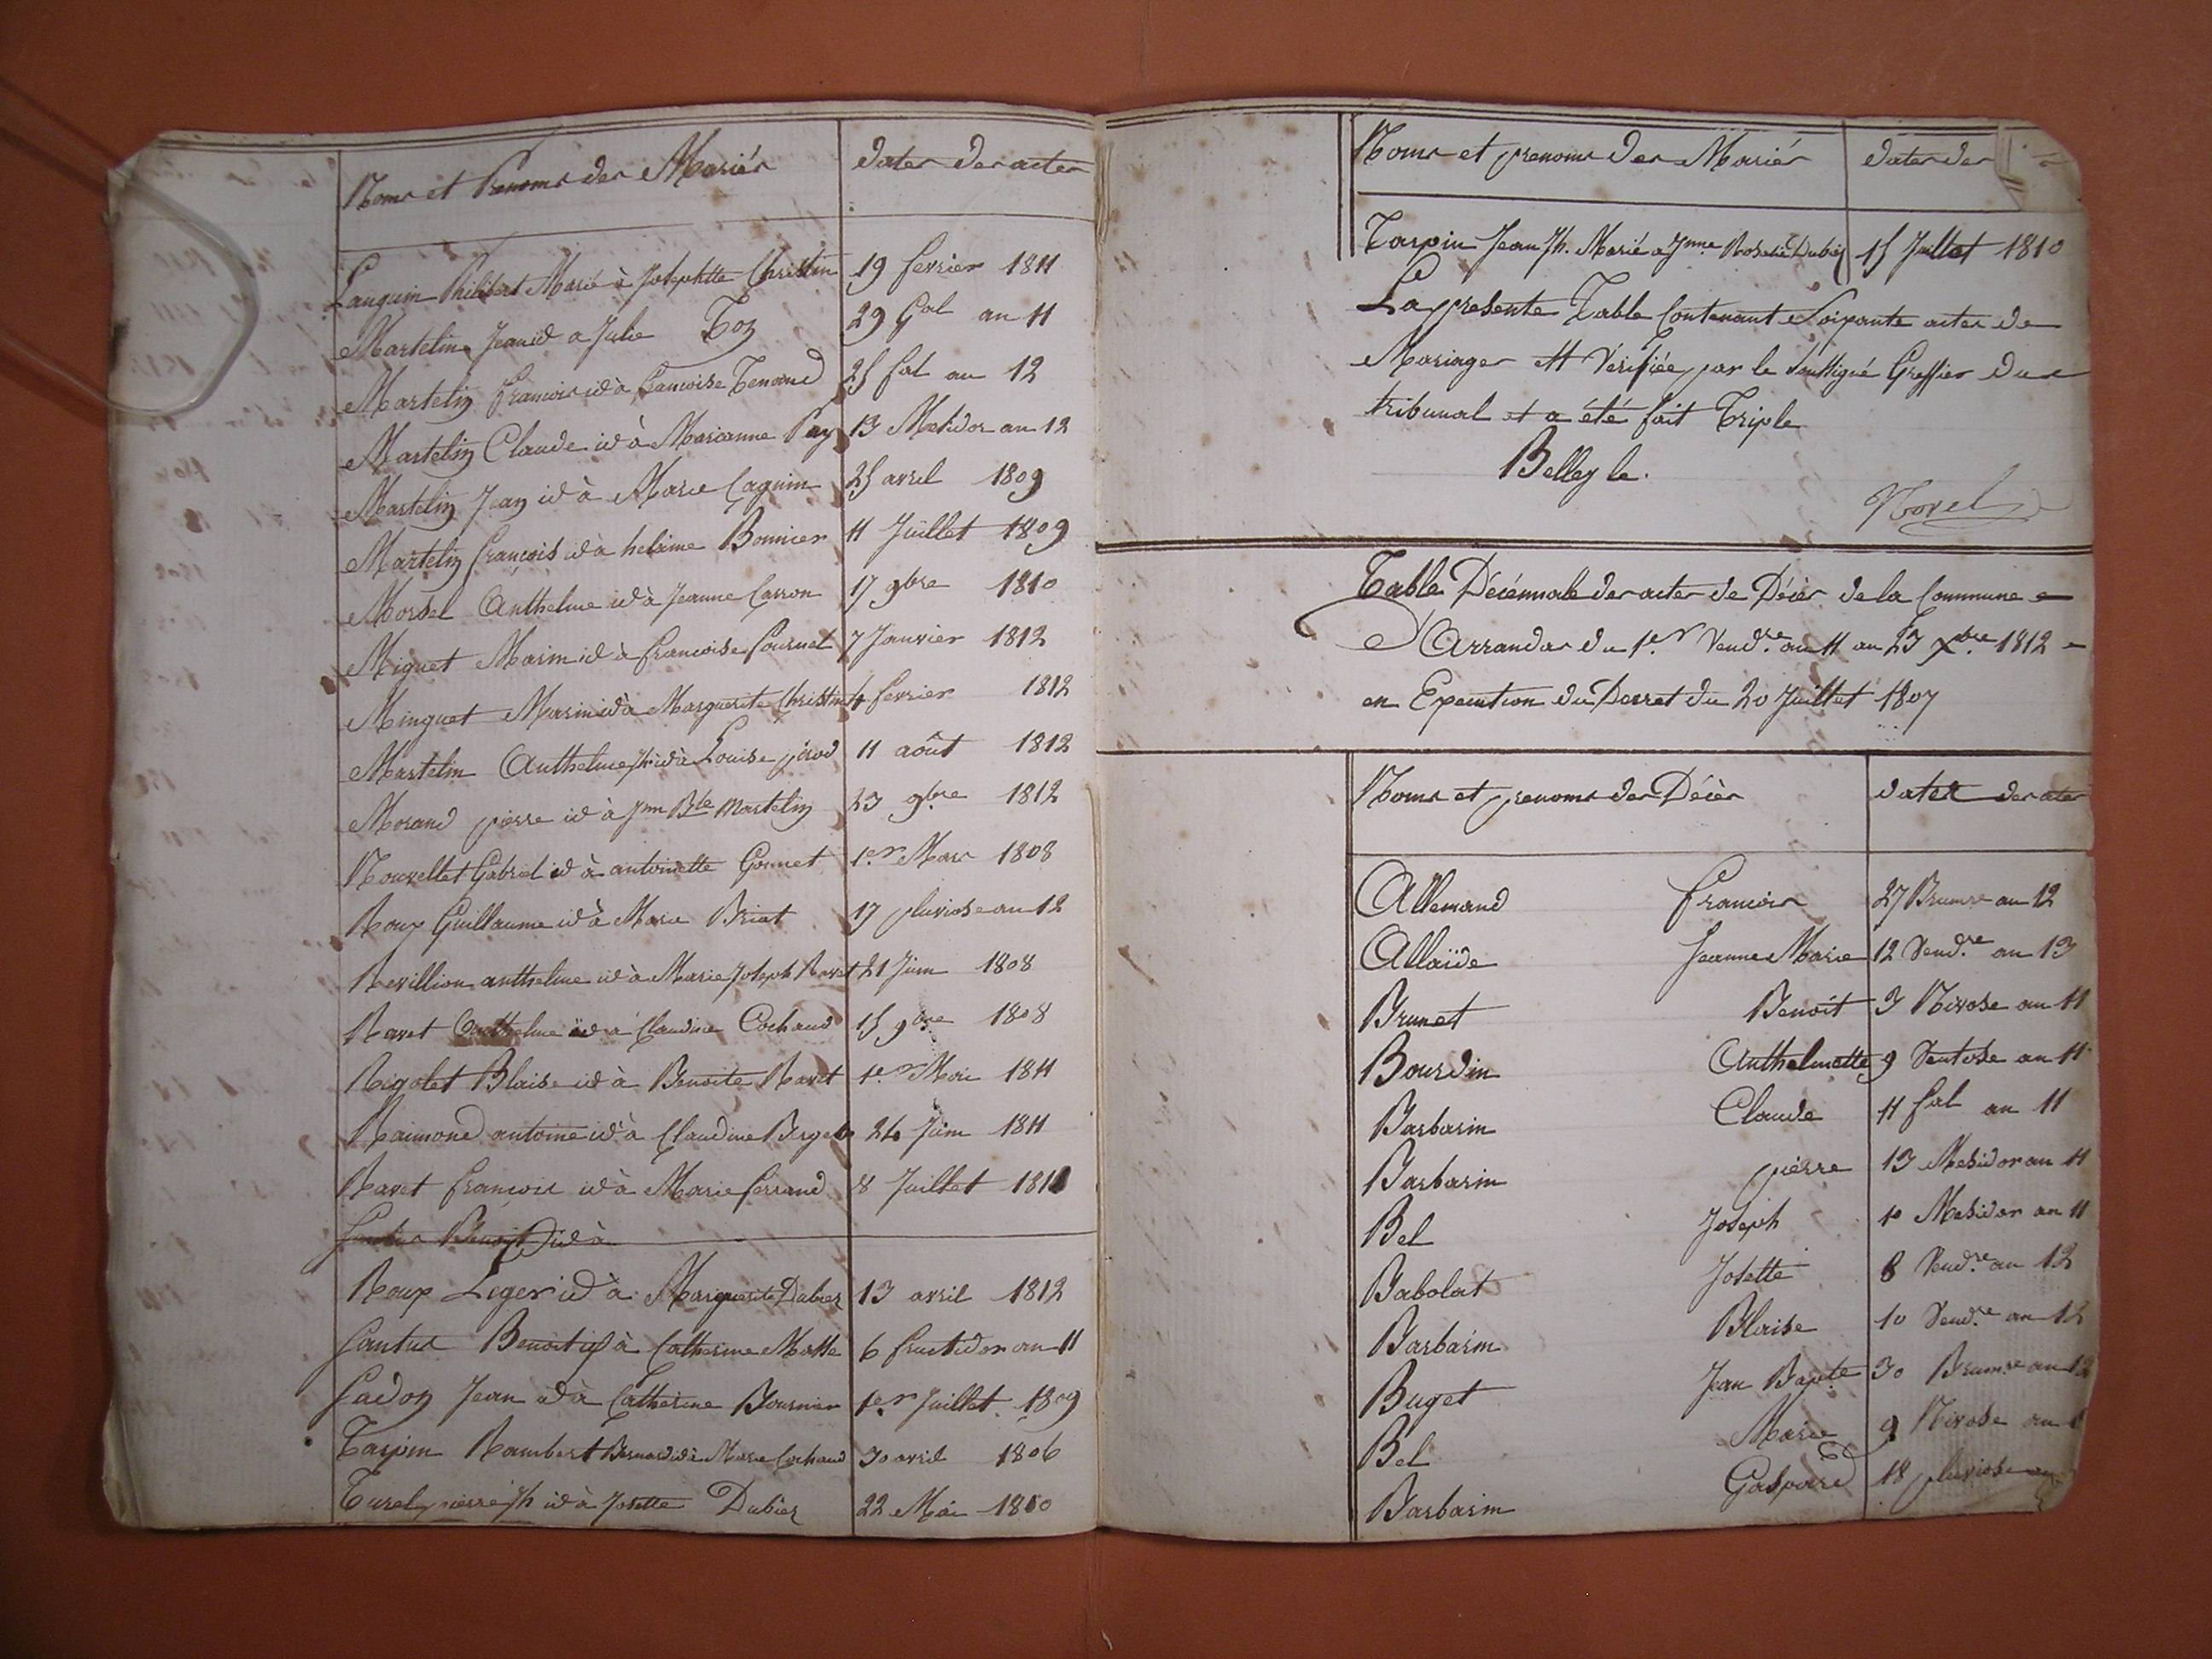 Noms et Prenoms des Mariés dates des actes
Languin Philibert Marié à Josephtte Christin 19 fevrier 1811
Martelin Jean id a Julie Toz 29 Gal an 11
Martelin francois id à francoise Tenand 25 fal au 12
Martelin Claude id à Marianne Pay 13 Mesidor an 12
Martelin Jean id à Marie Caguin 25 avril 1809
Martelin françois id à helaine Bonnier 11 Juillet 1809
Mordel Anthelme id à Jeanne Carron 17 9bre 1810
Miguet Marin id à francoise fournel 7 Janvier 1812
Minguet Marin id à Marguerite Christin 4 fevrier 1812
Martelin Anthelme Jh id à Louise pérod 11 août 1812
Morand pierre id à Jnn Bte Martelin 23 9bre 1812
Nouvellet Gabriel id à antoinette Gonnet 1er Mars 1808
Roux Guillaume id à Marie Briat 17 pluviose an 12
Revillion anthelme id à Marie Joseph Ravet 21 Juin 1808
Ravet Anthelme id à Claudine Cochaud 15 9bre 1808
Rigolet Blaise id à Benoite Ravet 1er Mai 1811
Raimond antoine id à Claudine Berger 24 Juin 1811
Ravet francois id à Marie ferrand 8 Juillet 1811
Santus Benoit id à
Roux Leger id à Marguerite Dubiez 13 avril 1812
Santus Benoit id à Catherine Matte 6 fructidor an 11
Sadon Jean id à Catherine Bournier 1er Juillet 1809
Tarpin Rambert Bernard id à Marie Cochaud 30 avril 1806
Turel pierre Jh id à Josette Dubiez 22 Mai 1810
Noms et prenoms des Mariés dates des
Tarpin Jean Jh. Marié a Jnne Rosalie Dubiez 15 Juillet 1810
La presente Table Contenant Soixante actes de
Mariages est Verifiée par le soussigné Greffier du
tribunal et a été fait Triple
Belley le.
Morel
Table Décénnale des actes de Décès de la Commune
D'Arrandas du 1er Vendre an 11 au 23 Xbre 1812
en Execution du Decret du 20 Juillet 1807
Noms et prenoms des Décès dates des actes
Allemand francois 27 Brumre an 12
Allaïde Jeanne Marie 12 Vendre an 13
Brunet Benoit 3 Nivose an 11
Bourdin Anthelmette 9 Ventose an 11
Barbarin Claude 11 fal an 11
Barbarin pierre 13 Mesidor an 11
Bel Joseph 10 Mesidor an 11
Babolat Josette 8 Vendre an 12
Barbarin Blaise 10 Vendre an 12
Buget Jean Bapte 30 Brumre an 12
Bel Marie 9 Nivose an
Barbarin Gaspard 18 pluviose an